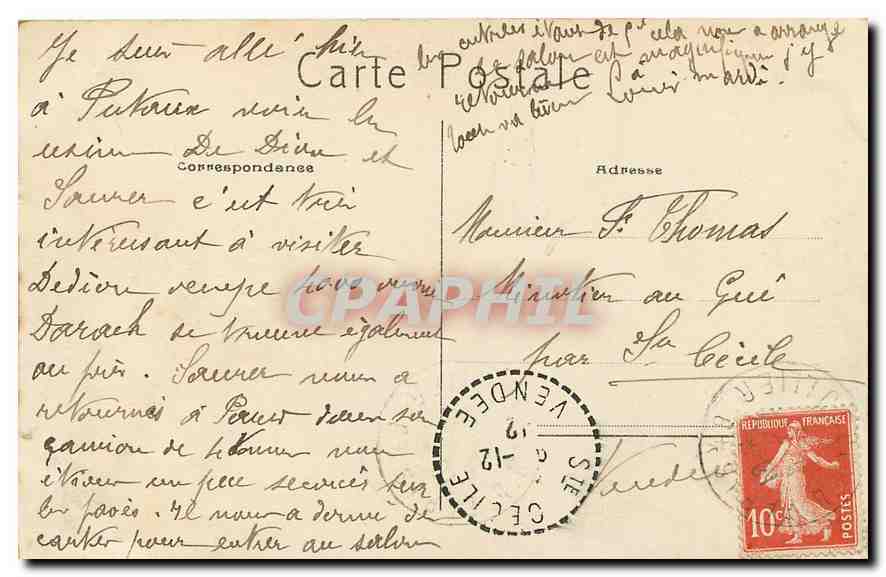 Carte Postale
Correspondance
Adresse
Je suis allé hier
à Puteaux voir les
usines De Dion et
Saurer c'est très
intéressant à visiter
Dedion occupe
Darack se trouve également
au près. Saurer nous a
retournés à Paris dans son
camion de 4 tonnes nous
étions un peu secoués sur
les pavés. Il nous a donné des
cartes pour entrer au salon
les entrées étant de 5f cela nous a arrangé
le salon est magnifique j'y
retourne à
Louis mardi.
Monsieur F. Thomas
Minotier au Gué
par Ste Cécile
Vendée
CPAPHIL
STE CECILE
VENDEE
-12
12
REPUBLIQUE FRANÇAISE
10c
POSTES